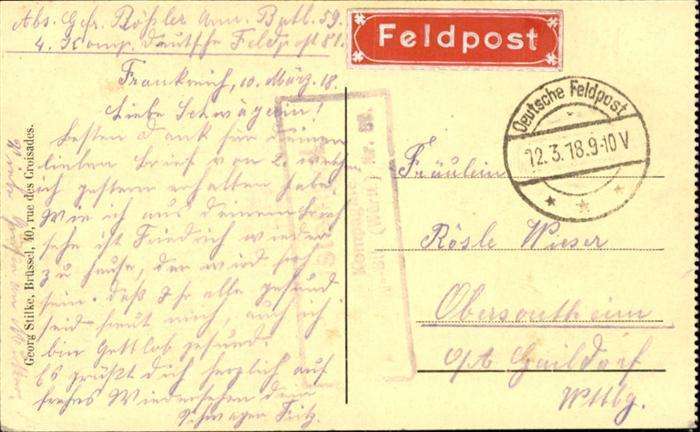 Abs. Gefr. Rößler Arm. Batl. 59.
4. Komp. Deutsche Feldpost 81.
Feldpost
Frankreich, 10. März. 18.
Liebe Schwägerin!
Besten Dank für Deinen
lieben Brief von 2. welchen
ich gestern erhalten habe.
Wie ich aus Deinem Brief
sehe ist Friedrich wieder
zu Hause, der wird froh
sein. Daß Ihr alle gesund
seid freut mich, auch ich
bin Gottlob gesund.
Es grüßt Dich herzlich auf
frohes Wiedersehen Dein
Schwager Fritz.
Georg Stilke, Brüssel, 40, rue des Croisades.
Deutsche Feldpost
12.3.18.9-10V
Fräulein
Rösle Wieser
Obersontheim
o/A Gaildorf
Wttbg.